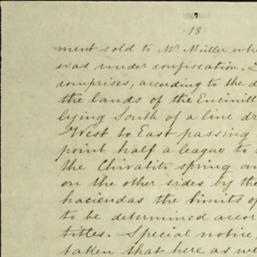 18
ment sold to Mr Müller wh
was under confiscation.
comprises, according to the d
the lands of the Encinill
lying South of a line dr
West to East passing
point half a league to
the Chivatito spring an
on the other sides by the
haciendas the limits of
to be determined accor
titles. Special notice
taken that here as we